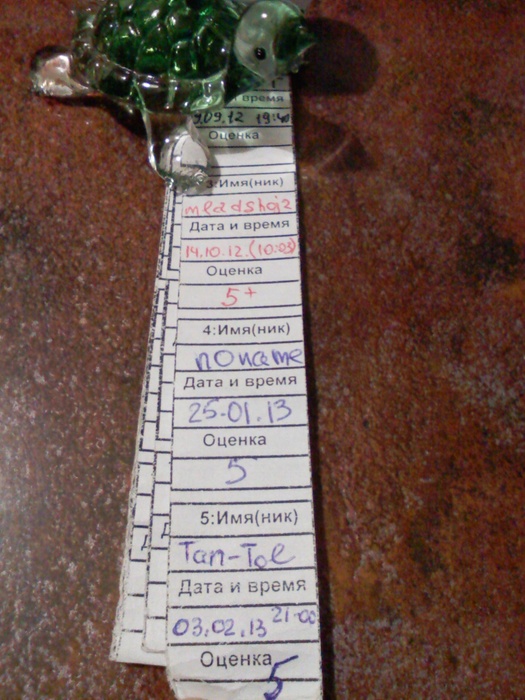 и время
9.09.12 19:40
Оценка
3:Имя(ник)
mladshoj2
Дата и время
14.10.12.(10:03)
Оценка
5+
4:Имя(ник)
noname
Дата и время
25-01.13
Оценка
5
5:Имя(ник)
Tan-Tol
Дата и время
03.02.13 21-00
Оценка
5